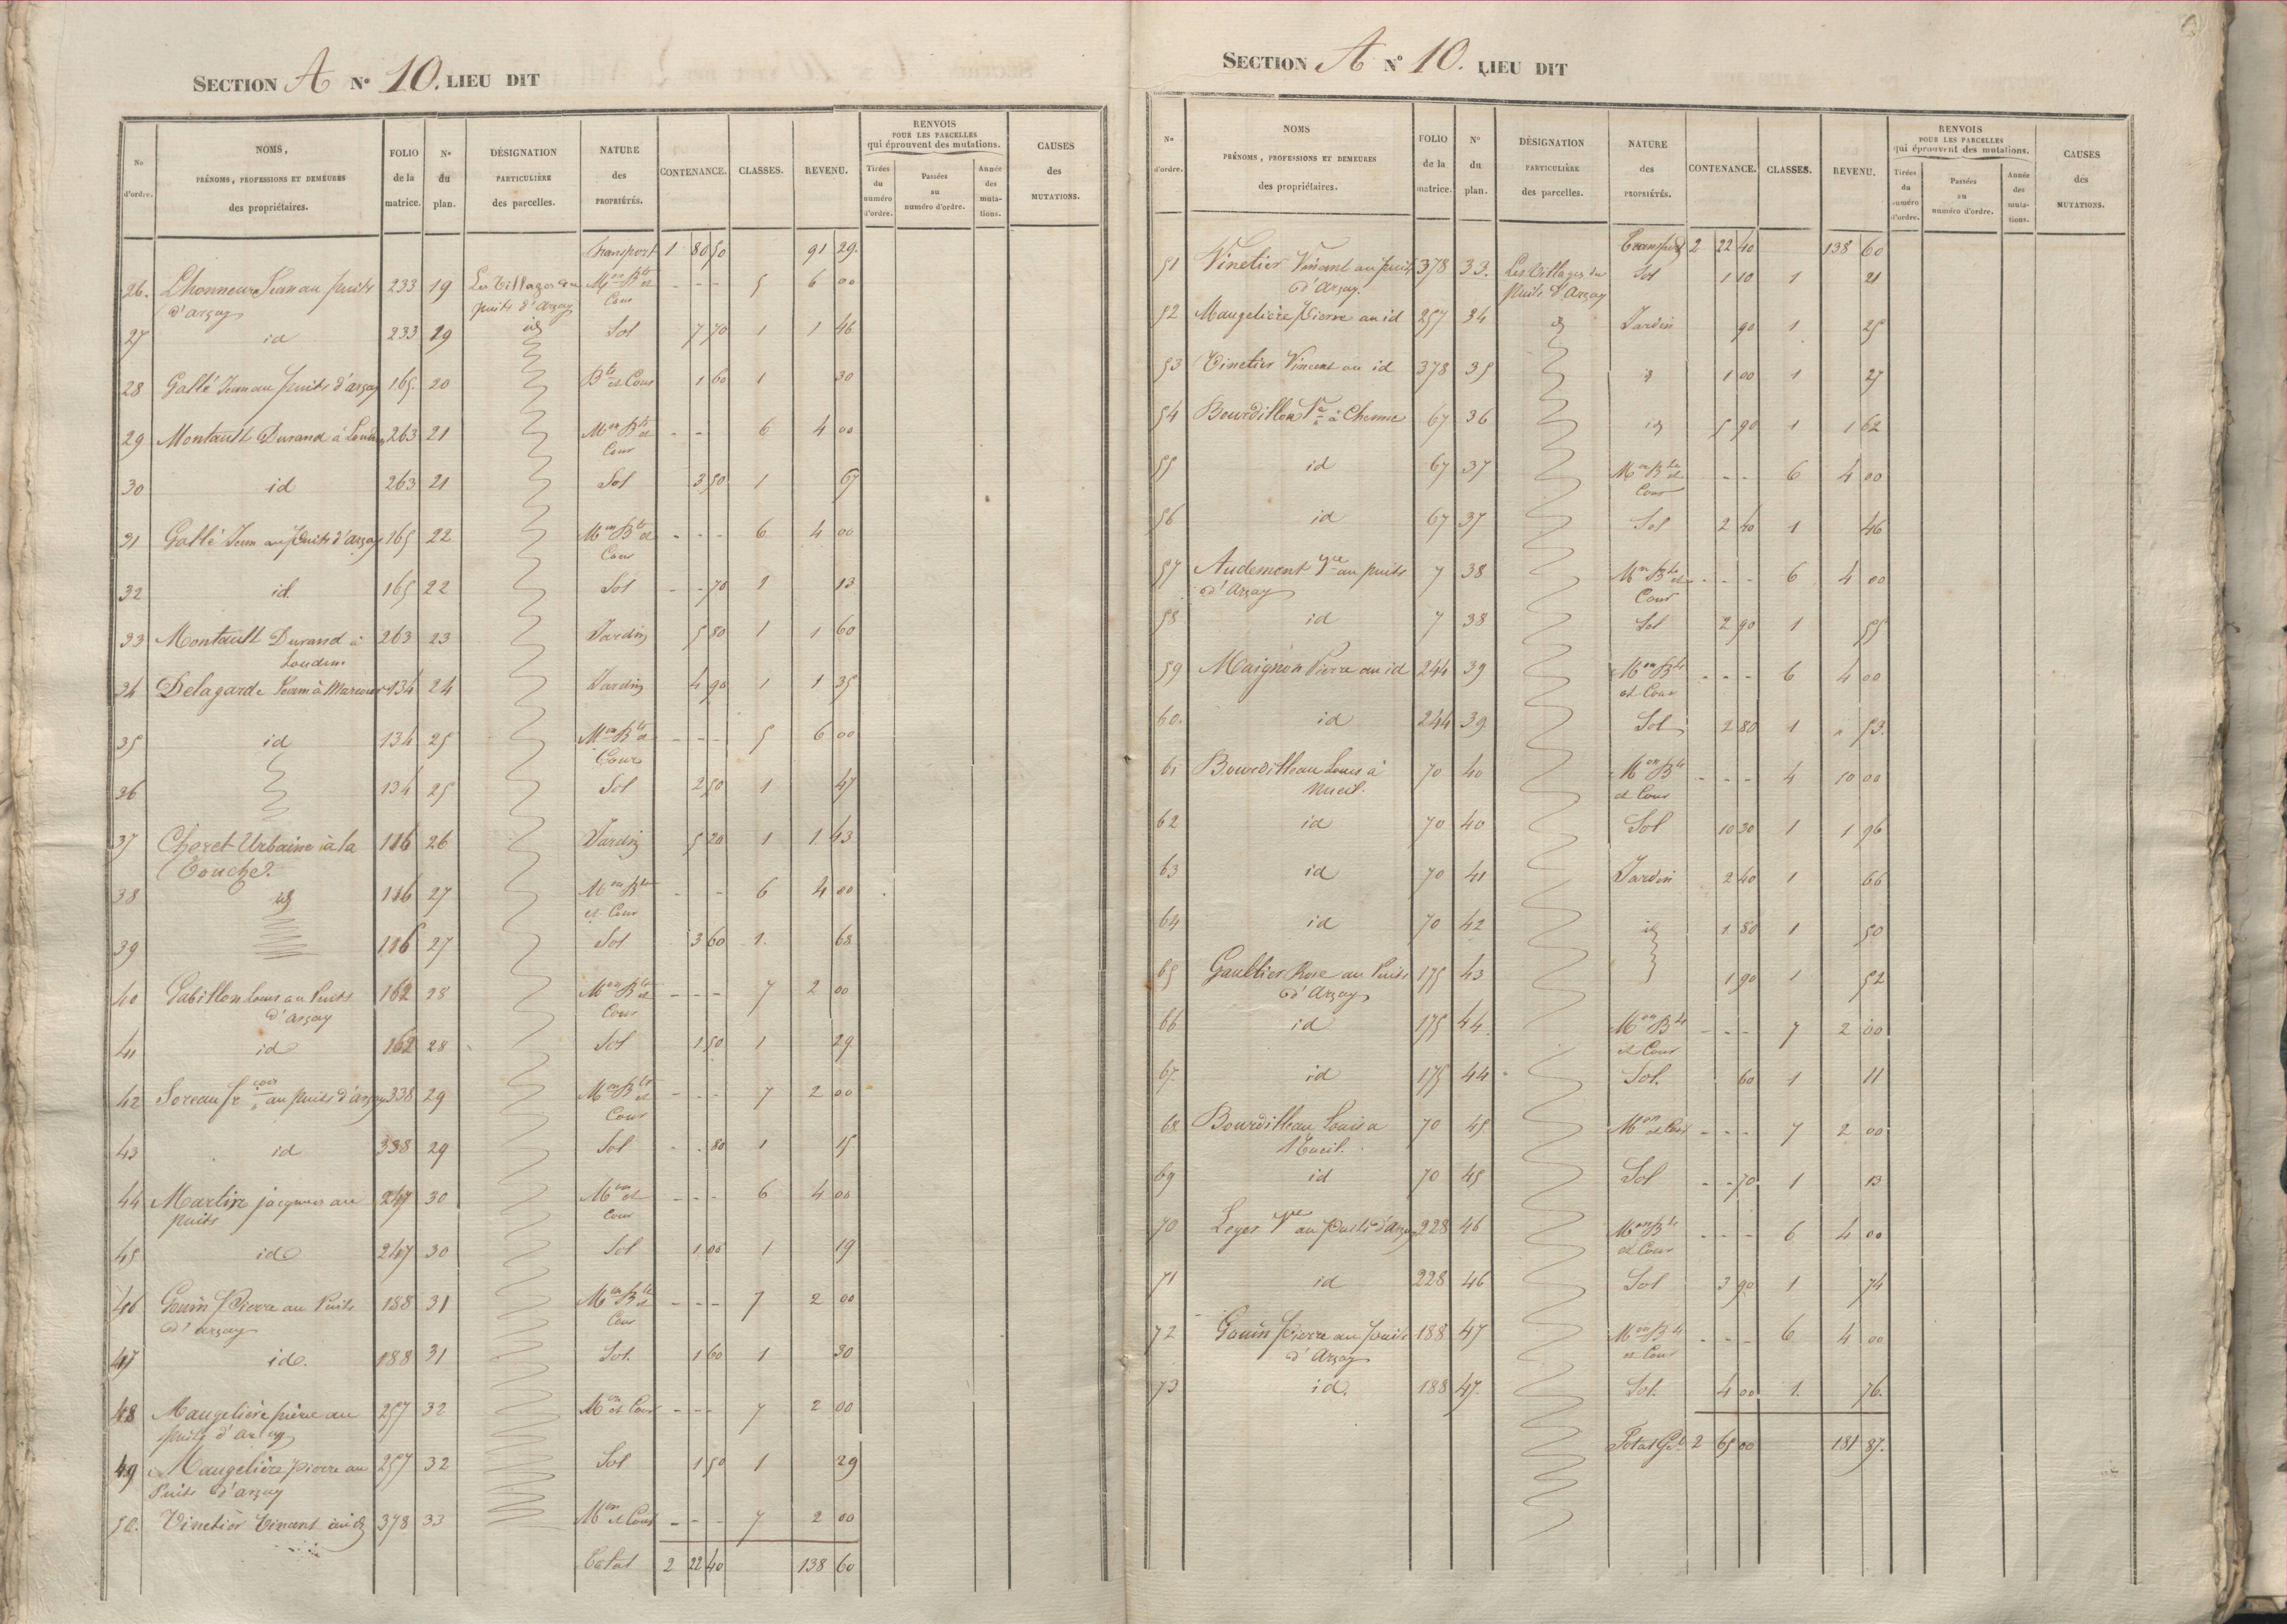 SECTION A N° 10. LIEU DIT
No d'ordre. NOMS, PRÉNOMS, PROFESSIONS ET DEMEURES des propriétaires. FOLIO de la matrice. N° du plan. DÉSIGNATION PARTICULIÈRE des parcelles. NATURE des PROPRIÉTÉS. CONTENANCE. CLASSES. REVENU. RENVOIS POUR LES PARCELLES qui éprouvent des mutations. Tirées du numéro d'ordre. Passées au numéro d'ordre. Année des mutations. CAUSES des MUTATIONS.
Transport 1 80 50 91 29.
26. Lhonneur Jean au puits 233 19 Les Villages du Mon Bts et - - - 5 6 00
d'arçay puits d'arçay Cour
27 id 233 19 id Sol 7 70 1 1 46
28 Gallé Jean au puits d'arçay 165. 20 Bts et Cour 1 60 1 30
29 Montault Durand à Loudun 263 21 Mon Bts et - - 6 4 00
Cour
30 id 263 21 Sol 3 50 1 67
31 Gallé Jean au puits d'arçay 165 22 Mon Bts et - - - 6 4 00
Cour
32 id 165 22 Sol - - 70 1 13
33 Montault Durand à 263 23 Jardin 5 80 1 1 60
Loudun
34 Delagarde Jean à 134 24 Jardin 4 90 1 1 35
35 id 134 25 Mon Bts et - - - 5 6 00
Cour
36 134 25 Sol 2 50 1 47
37 Cheret Urbaine à la 116 26 Jardin 5 20 1 1 43
Touche.
38 id 116 27 Mon Bts - - 6 4 00
et Cour
39 116 27 Sol 3 60 1. 68
40 Gabillon Louis au Puits 162 28 Mon Bts et - - - 7 2 00
d'arçay Cour
41 id 162 28 Sol 1 50 1 29
42 Soreau fr çois au puits d'arçay 338 29 Mon Bts et - - - 7 2 00
Cour
43 id 338 29 Sol - - 80 1 15
44 Martin jacques au 247 30 Mon et - - - 6 4 00
puits Cour
45 id 247 30 Sol 1 00 1 19
46 Gouin Pierre au Puits 188 31 Mon Bts et - - - 7 2 00
d'arçay Cour
47 id. 188 31 Sol. 1 60 1 30
48 Maugelière pierre au 257 32 Mon et Cour - - - 7 2 00
puits d'arçay
49 Maugelière pierre au 257 32 Sol 1 50 1 29
Puits d'arçay
50. Vinetier Vincent au id 378 33 Mon et Cour - - - 7 2 00
Total 2 22 40 138 60
SECTION A N° 10. LIEU DIT
No d'ordre. NOMS PRÉNOMS, PROFESSIONS ET DEMEURES des propriétaires. FOLIO de la matrice. N° du plan. DÉSIGNATION PARTICULIÈRE des parcelles. NATURE des PROPRIÉTÉS. CONTENANCE. CLASSES. REVENU. RENVOIS POUR LES PARCELLES qui éprouvent des mutations. Tirées du numéro d'ordre. Passées au numéro d'ordre. Année des mutations. CAUSES des MUTATIONS.
Transport 2 22 40 138 60
51 Vinetier Vincent au puits 378 33. Les Villages du Sol 1 10 1 21
d'Arçay. puits d'Arçay
52 Maugelière Pierre au id 257 34 id Jardin 90 1 25
53 Vinetier Vincent au id 378 35 id 1 00 1 27
54 Bourdillon Ve à Chenne 67 36 id 5 90 1 1 62
55 id 67 37 Mon Bts et - - 6 4 00
Cour
56 id 67 37 Sol 2 40 1 46
57 Audemont Vve au puits 7 38 Mon Bts et - - - 6 4 00
d'Arçay Cour
58 id 7 38 Sol 2 90 1 55
59 Maignon Pierre au id 244 39 Mon Bts - - - 6 4 00
et Cour
60. id 244 39 Sol 2 80 1 " 53.
61 Bourdilleau Louis à 70 40 Mon Bts - - - 4 10 00
Nueil. et Cour
62 id 70 40 Sol 10 30 1 1 96
63 id 70 41 Jardin 2 40 1 66
64 id 70 42 id 1 80 1 50
65 Gaultier Rose au Puits 175 43 1 90 1 52
d'Arçay
66 id 175 44. Mon Bts - - - 7 2 00
et Cour
67. id 175 44 Sol. 60 1 11
68. Bourdilleau Louis a 70 45 Mon et Cour - - - 7 2 00
Nueil.
69 id 70 45 Sol - - 70 1 13
70 Leger Vve au Puits d'Arçay 228 46 Mon Bts - - - 6 4 00
et Cour
71 id 228 46 Sol 3 90 1 74
72 Gouin Pierre au puits 188 47 Mon Bts - - - 6 4 00
d'Arçay et Cour
73 id. 188 47. Sol. 4 00 1. 76.
Total Gal 2 65 00 181 87.